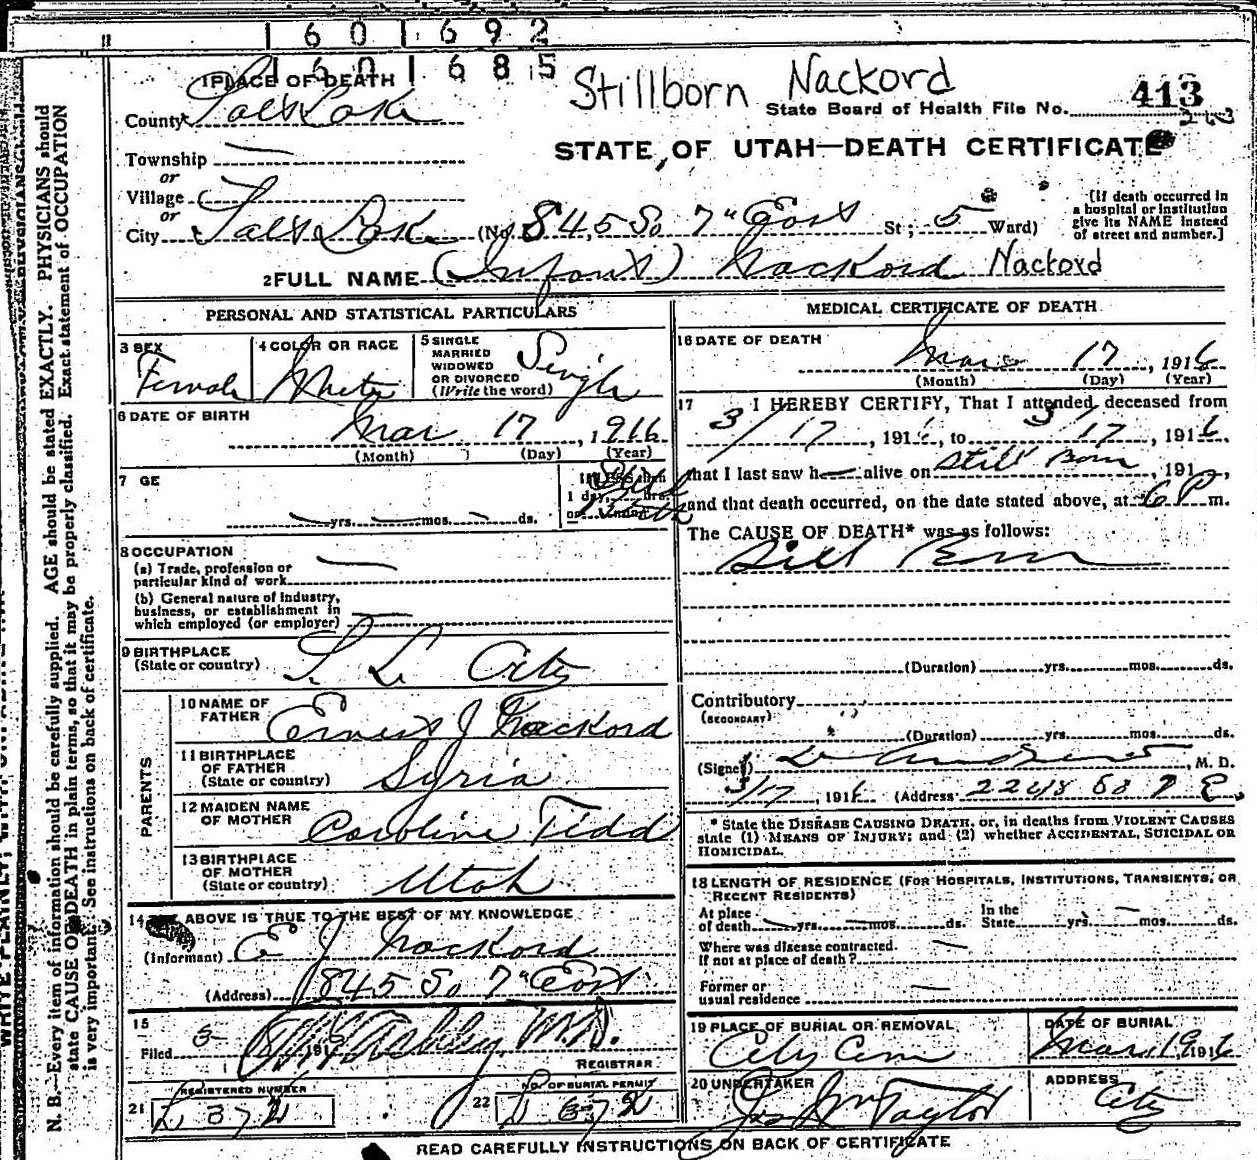 1 6 0 1 6 9 2
1 6 0 1 6 8 5
Stillborn Nackord
1 PLACE OF DEATH
State Board of Health File No. 413
County Salt Lake
STATE OF UTAH—DEATH CERTIFICATE
Township —
or
Village
or
City Salt Lake (No. 845 So 7" East St; 5 Ward)
[If death occurred in
a hospital or institution
give its NAME instead
of street and number.]
2 FULL NAME (Infant) Nackord Nackord
PERSONAL AND STATISTICAL PARTICULARS
3 SEX
Female
4 COLOR OR RACE
White
5 SINGLE
MARRIED
WIDOWED
OR DIVORCED
(Write the word)
Single
6 DATE OF BIRTH
Mar 17, 1916
(Month) (Day) (Year)
7 GE
— yrs. — mos. — ds.
If LESS than
1 day, hrs.
Still
8 OCCUPATION
(a) Trade, profession or
particular kind of work —
(b) General nature of industry,
business, or establishment in
which employed (or employer) —
9 BIRTHPLACE
(State or country) S. L. City
PARENTS
10 NAME OF
FATHER Ernest J Nackord
11 BIRTHPLACE
OF FATHER
(State or country) Syria
12 MAIDEN NAME
OF MOTHER Caroline Tidd
13 BIRTHPLACE
OF MOTHER
(State or country) Utah
14 ABOVE IS TRUE TO THE BEST OF MY KNOWLEDGE
(Informant) E J Nackord
(Address) 845 So 7" East
15
Filed M.D.
REGISTRAR
REGISTERED NUMBER
21 D 372
NO. OF BURIAL PERMIT
22 D 372
MEDICAL CERTIFICATE OF DEATH
16 DATE OF DEATH
Mar 17, 1916
(Month) (Day) (Year)
17 I HEREBY CERTIFY, That I attended deceased from
3/17, 1916, to 3/17, 1916,
that I last saw h— alive on Still Born, 191,
and that death occurred, on the date stated above, at 6 P m.
The CAUSE OF DEATH* was as follows:
Still Born
(Duration) yrs. mos. ds.
Contributory
(SECONDARY)
(Duration) yrs. mos. ds.
(Signed) , M. D.
3/17, 1916 (Address) 2248 So 7 E.
* State the DISEASE CAUSING DEATH, or, in deaths from VIOLENT CAUSES
state (1) MEANS OF INJURY; and (2) whether ACCIDENTAL, SUICIDAL OR
HOMICIDAL.
18 LENGTH OF RESIDENCE (FOR HOSPITALS, INSTITUTIONS, TRANSIENTS, OR
RECENT RESIDENTS)
At place
of death — yrs. — mos. ds. In the
State yrs. — mos. ds.
Where was disease contracted.
If not at place of death? —
Former or
usual residence —
19 PLACE OF BURIAL OR REMOVAL
City Cem
DATE OF BURIAL
Mar. 19 1916
20 UNDERTAKER
Jos Wm Taylor
ADDRESS
City
READ CAREFULLY INSTRUCTIONS ON BACK OF CERTIFICATE
N. B.—Every item of information should be carefully supplied. AGE should be stated EXACTLY. PHYSICIANS should
state CAUSE OF DEATH in plain terms, so that it may be properly classified. Exact statement of OCCUPATION
is very important. See instructions on back of certificate.